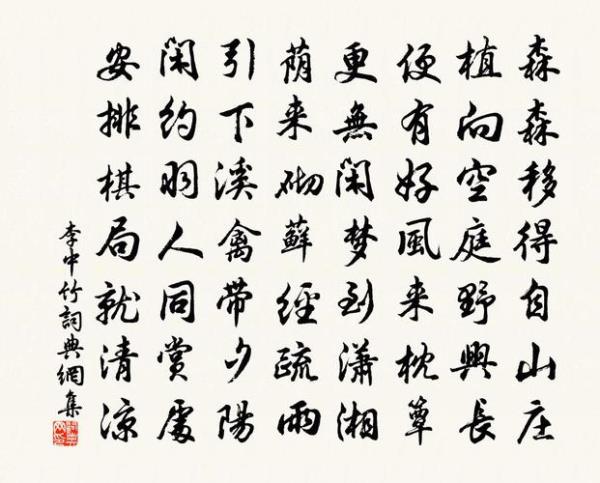 森森移得自山庄
植向空庭野興長
便有好風来枕簟
更無闲梦到瀟湘
荫来砌蘚經疏雨
引下溪禽带夕陽
闲约羽人同赏處
安排棋局就清凉
李中竹詞典網集